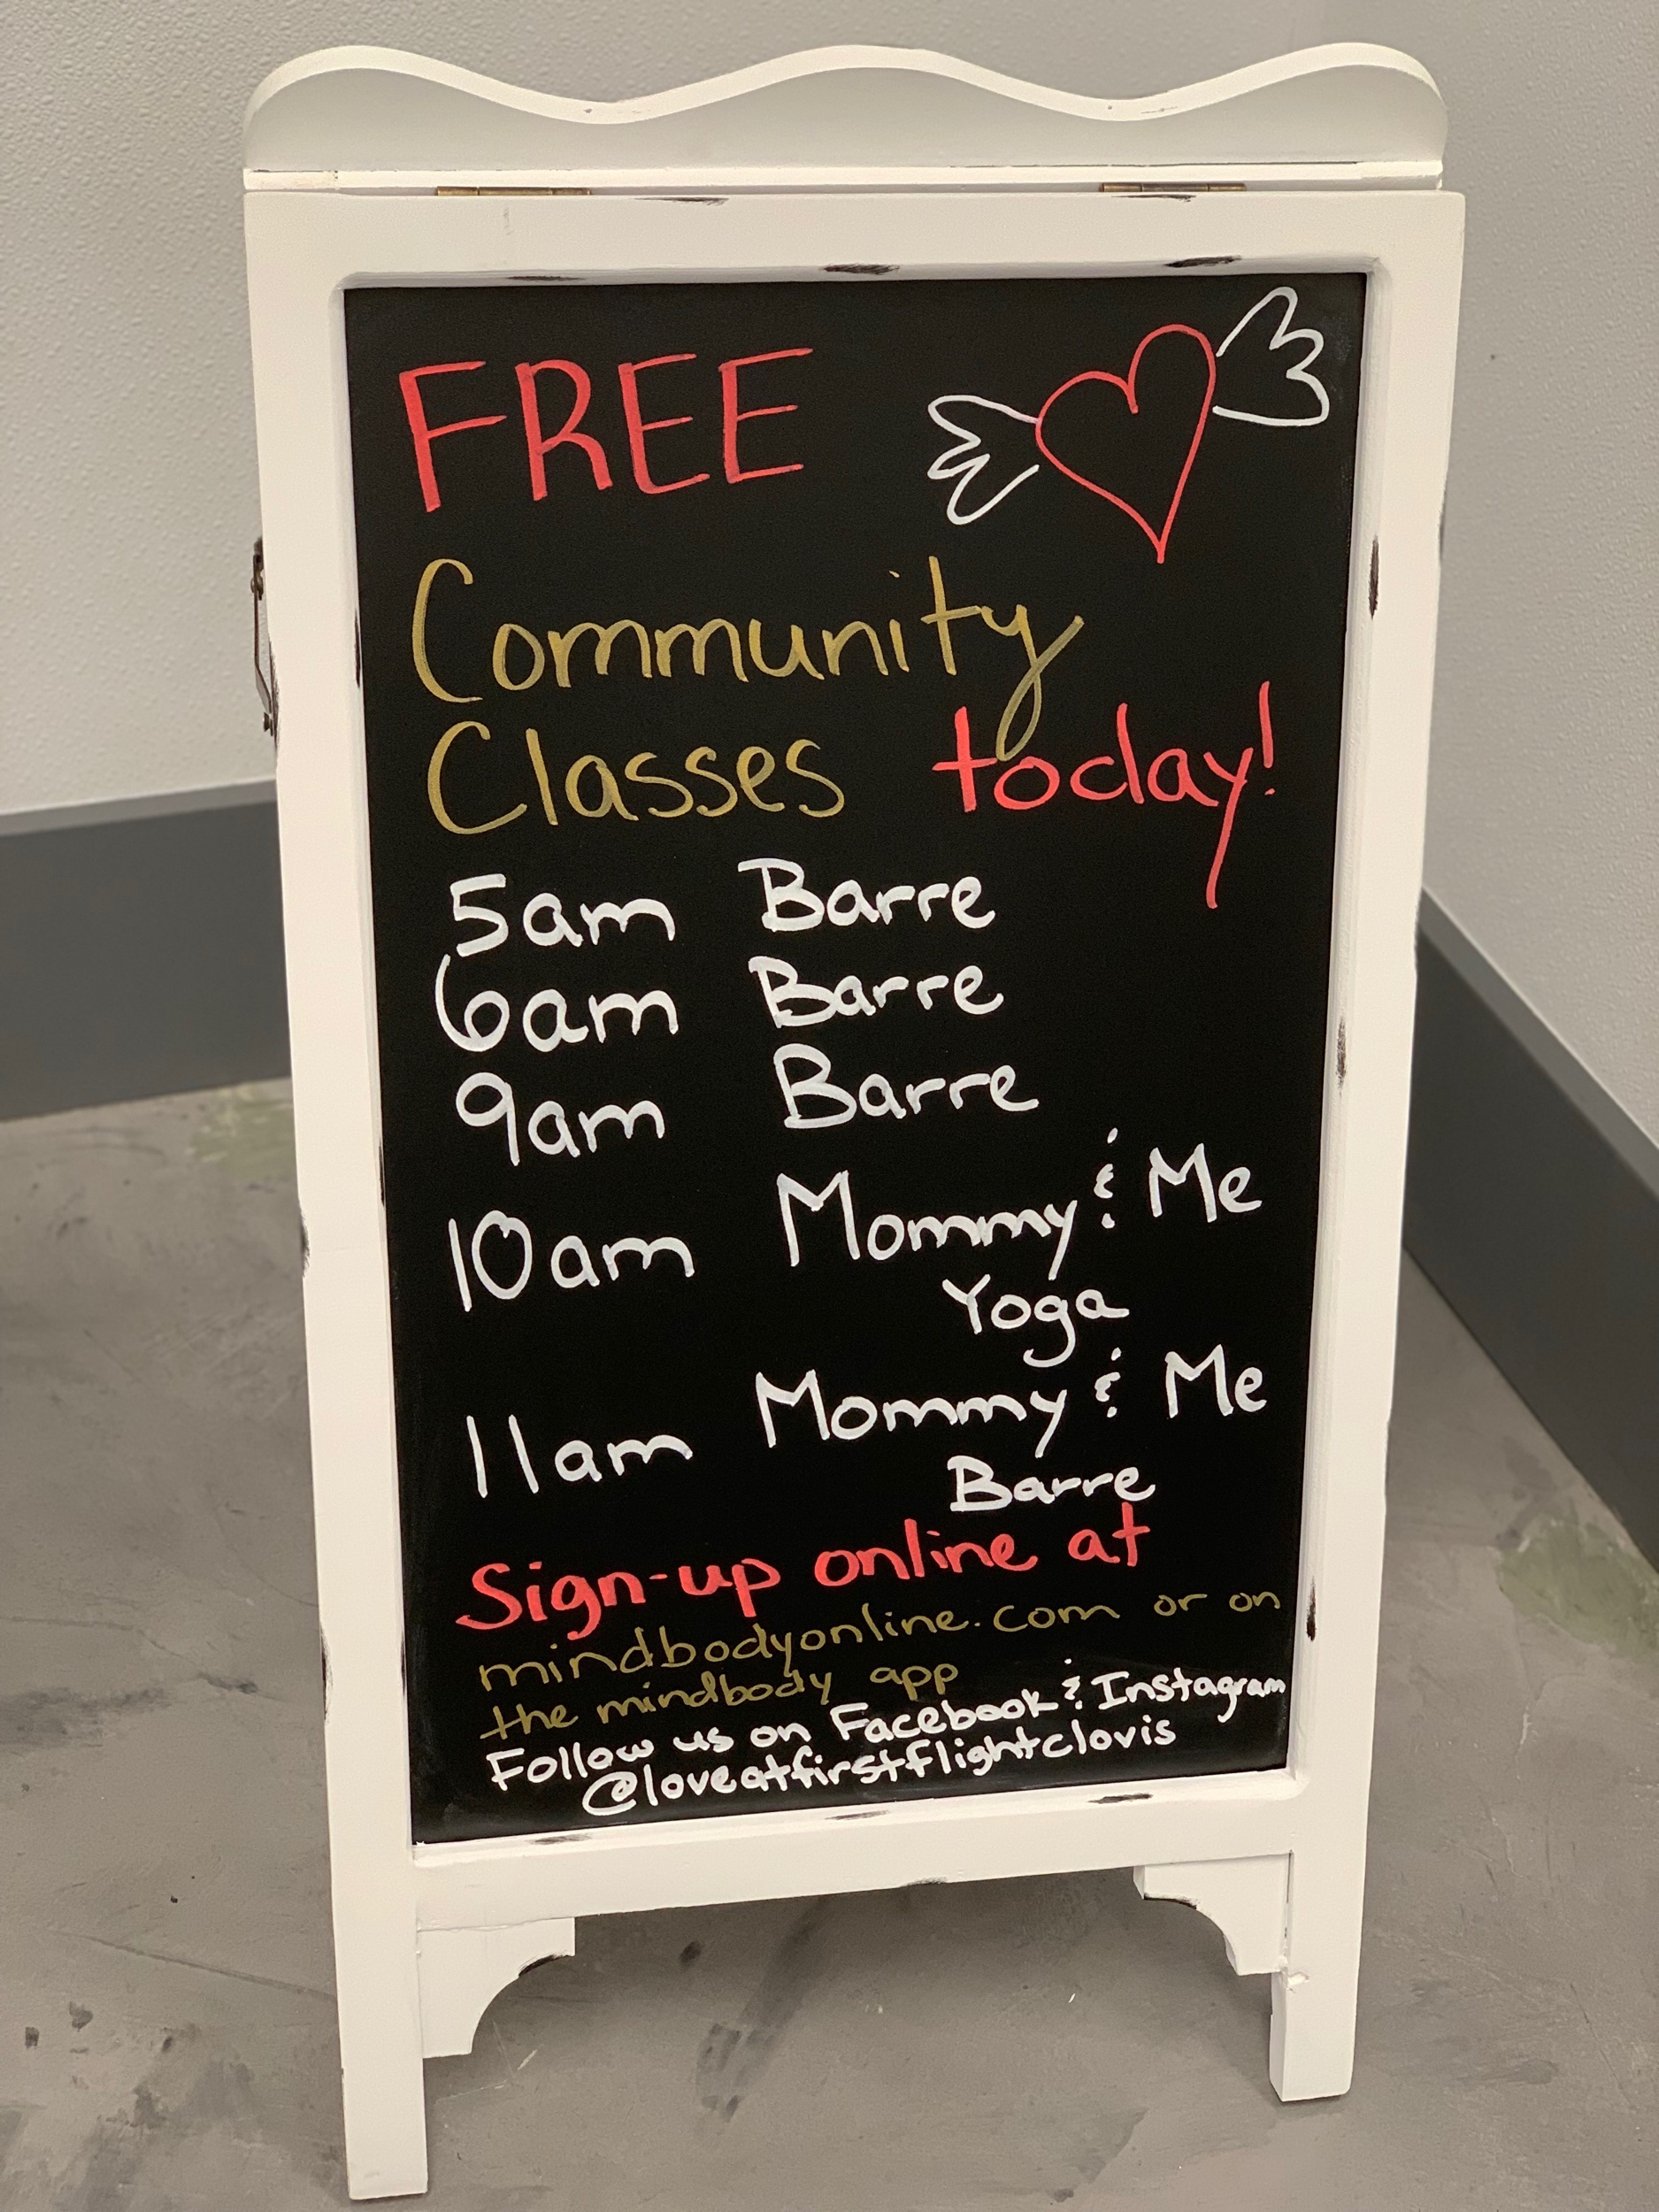 FREE
Community
Classes today!
5am Barre
6am Barre
9am Barre
10am Mommy & Me
Yoga
11am Mommy & Me
Barre
Sign-up online at
mindbodyonline.com or on
the mindbody app
Follow us on Facebook & Instagram
@loveatfirstflightclovis